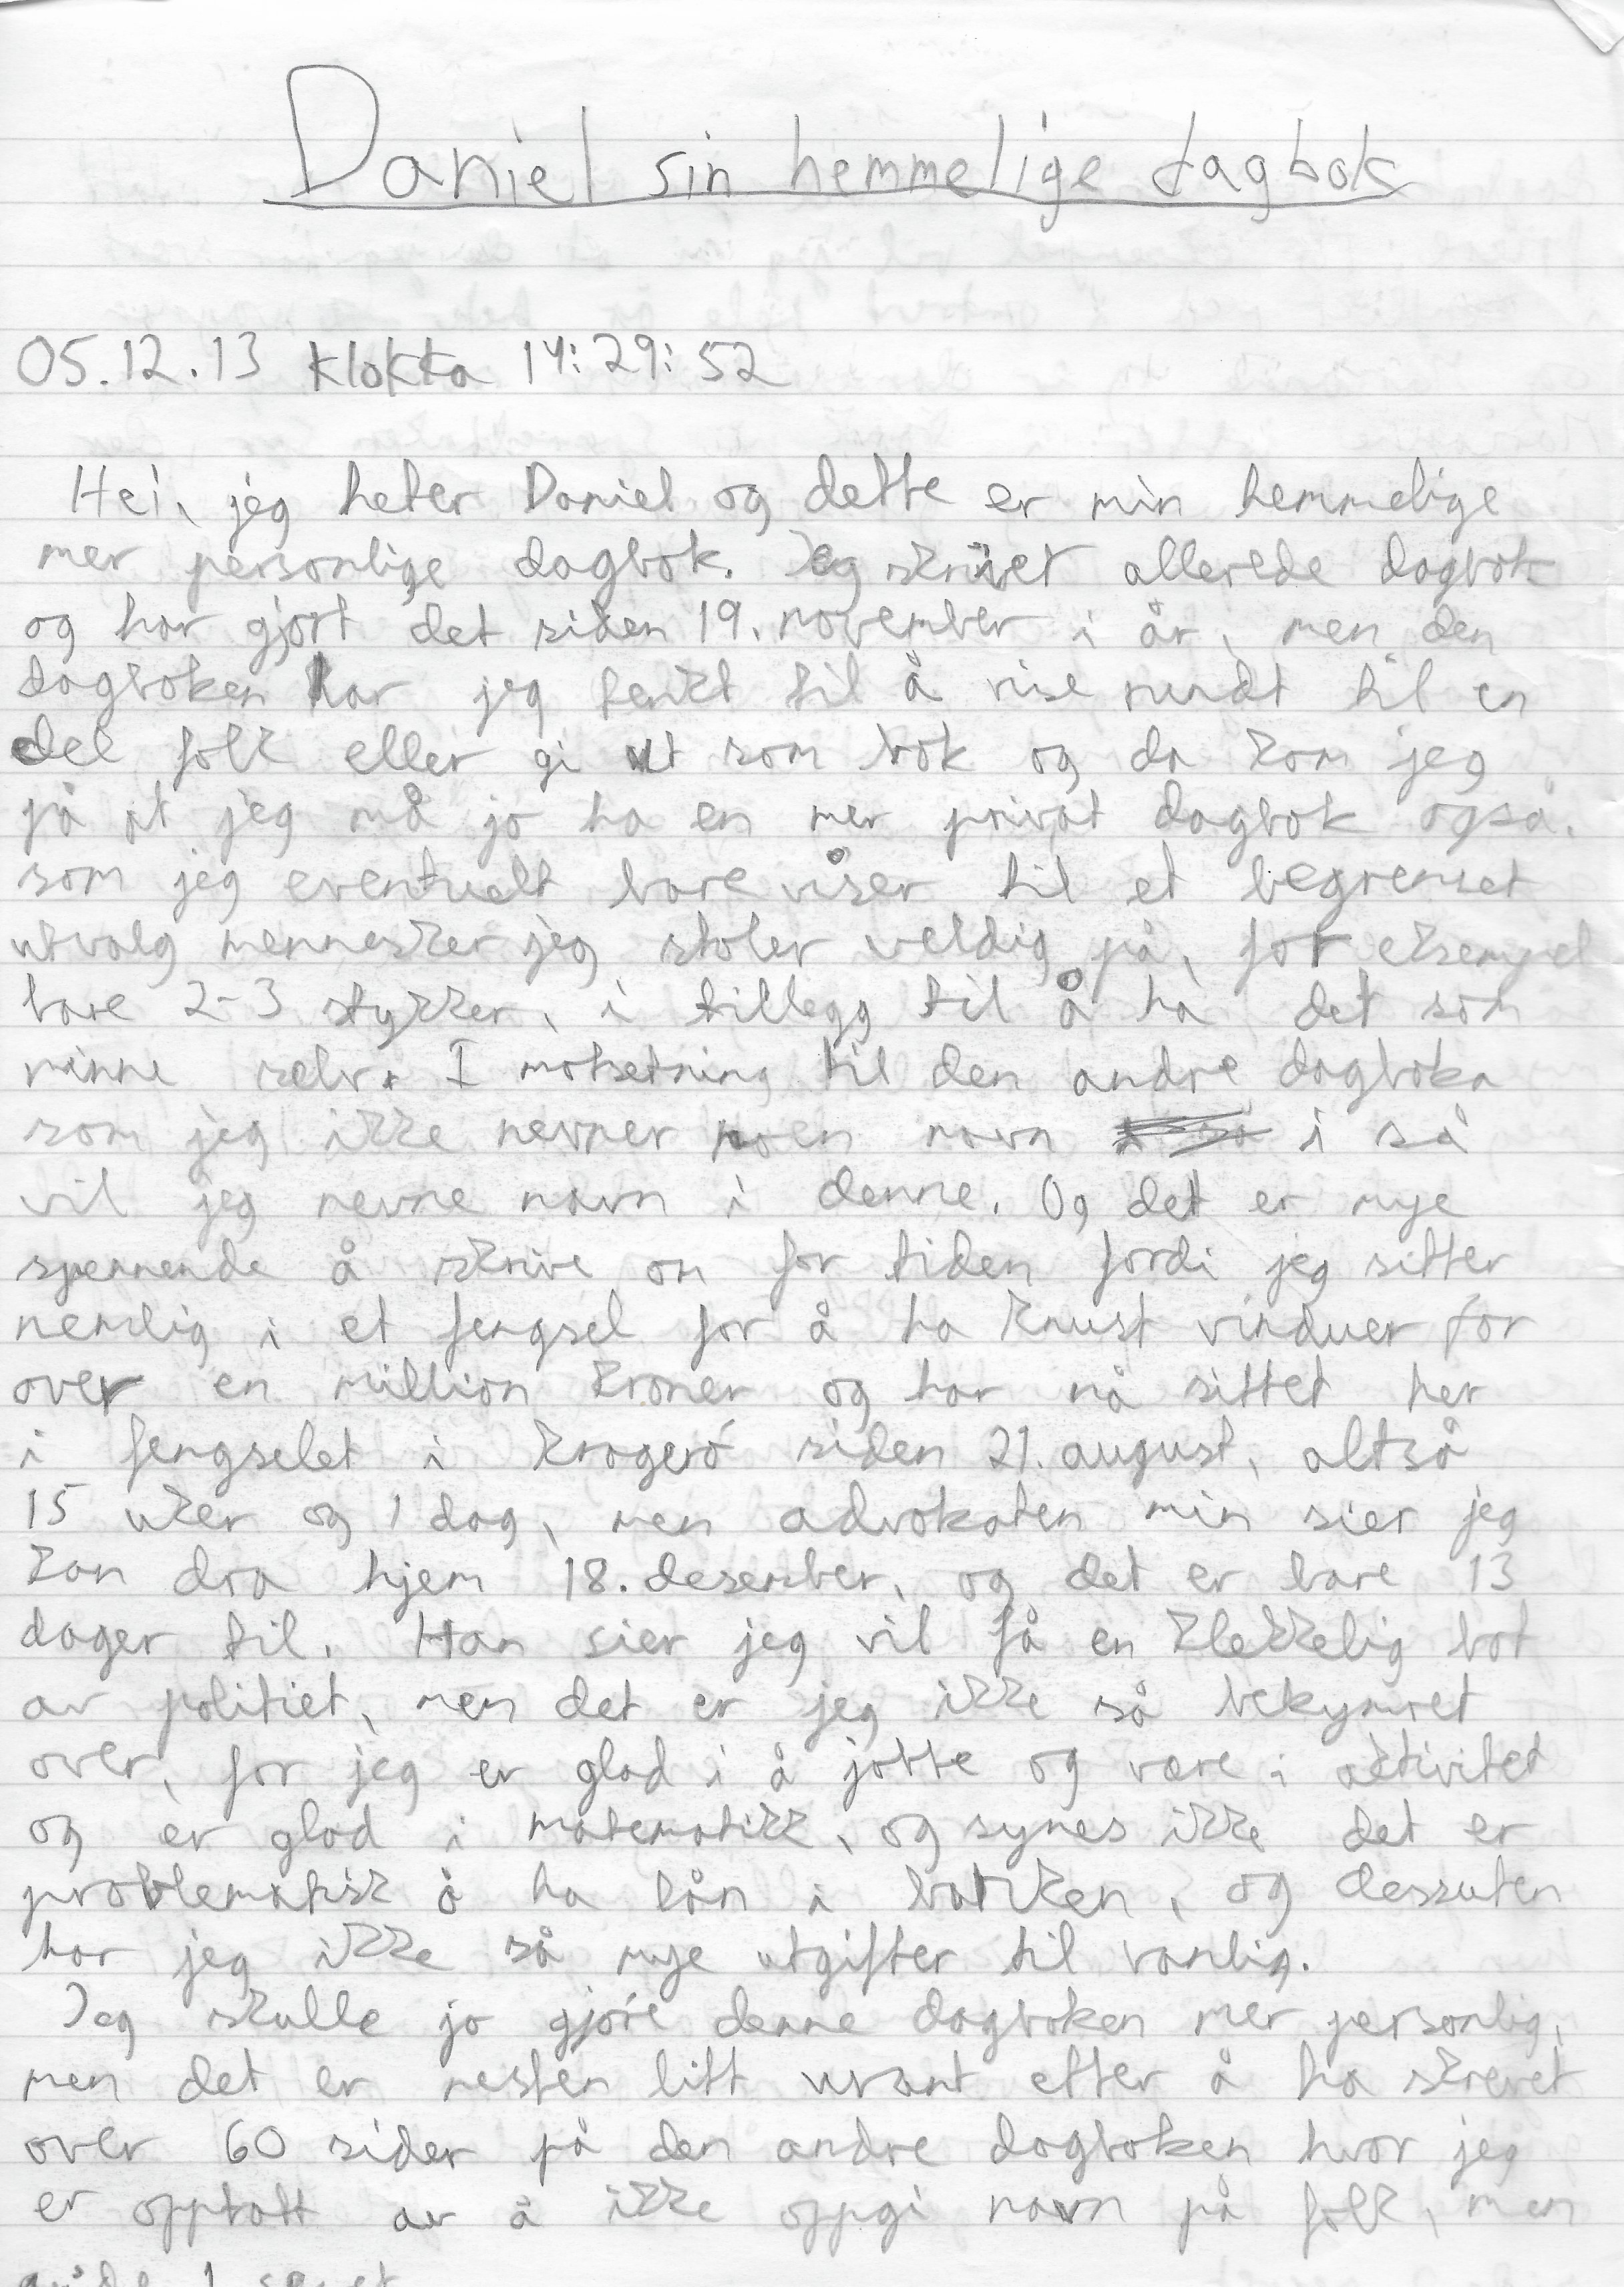 Daniel sin hemmelige dagbok
05.12.13 klokka 14:29:52
Hei, jeg heter Daniel og dette er min hemmelige
mer personlige dagbok. Jeg skrivet allerede dagbok
og har gjort det siden 19. november i år, men den
dagboken har jeg tenkt til å vise rundt til en
del folk eller gi ut som bok og da kom jeg
på at jeg må jo ha en mer privat dagbok også.
som jeg eventuelt bare viser til et begrenset
utvalg mennesker jeg stoler veldig på, for eksempel
bare 2-3 stykker, i tillegg til å ha det som
minne selv. I motsetning til den andre dagboka
som jeg ikke nevner noen navn i så
vil jeg nevne navn i denne. Og det er mye
spennende å skrive om for tiden fordi jeg sitter
nemlig i et fengsel for å ha knust vinduer for
over en million kroner og har nå sittet her
i fengselet i Kragerø siden 21. august, altså
15 uker og 1 dag, men advokaten min sier jeg
kan dra hjem 18. desember, og det er bare 13
dager til. Han sier jeg vil få en klekkelig bot
av politiet, men det er jeg ikke så bekymret
over, for jeg er glad i å jobbe og være i aktivitet
og er glad i matematikk, og synes ikke det er
problematisk å ha lån i banken, og dessuten
har jeg ikke så mye utgifter til vanlig.
Jeg skulle jo gjøre denne dagboken mer personlig,
men det er nesten litt uvant etter å ha skrevet
over 60 sider på den andre dagboken hvor jeg
er opptatt av å ikke oppgi navn på folk, men